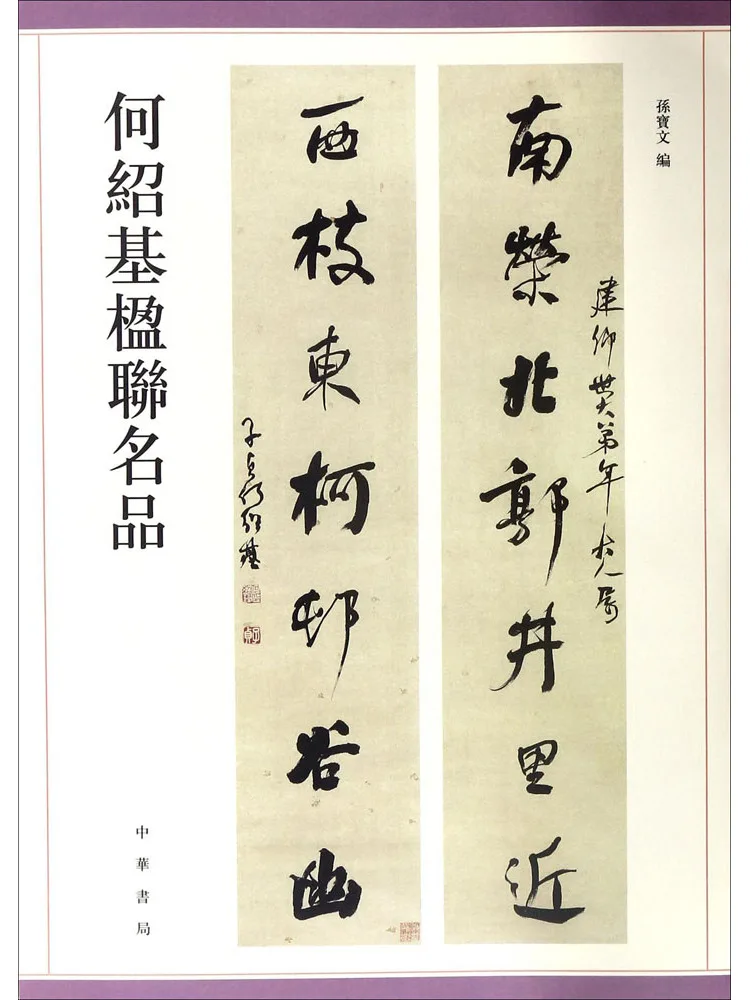 孫寶文 编
建世大弟年大人屬
南榮北郭井里近
西枝東柯邨谷幽
子貞何紹基
何紹基楹聯名品
中華書局